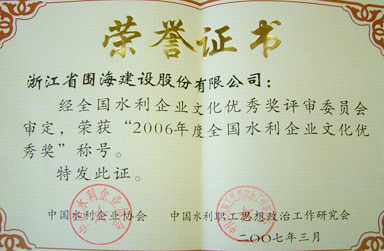 荣誉证书
浙江省围海建设股份有限公司：
经全国水利企业文化优秀奖评审委员会
审定，荣获“2006年度全国水利企业文化优
秀奖”称号。
特发此证。
中国水利企业协会 中国水利职工思想政治工作研究会
二〇〇七年三月